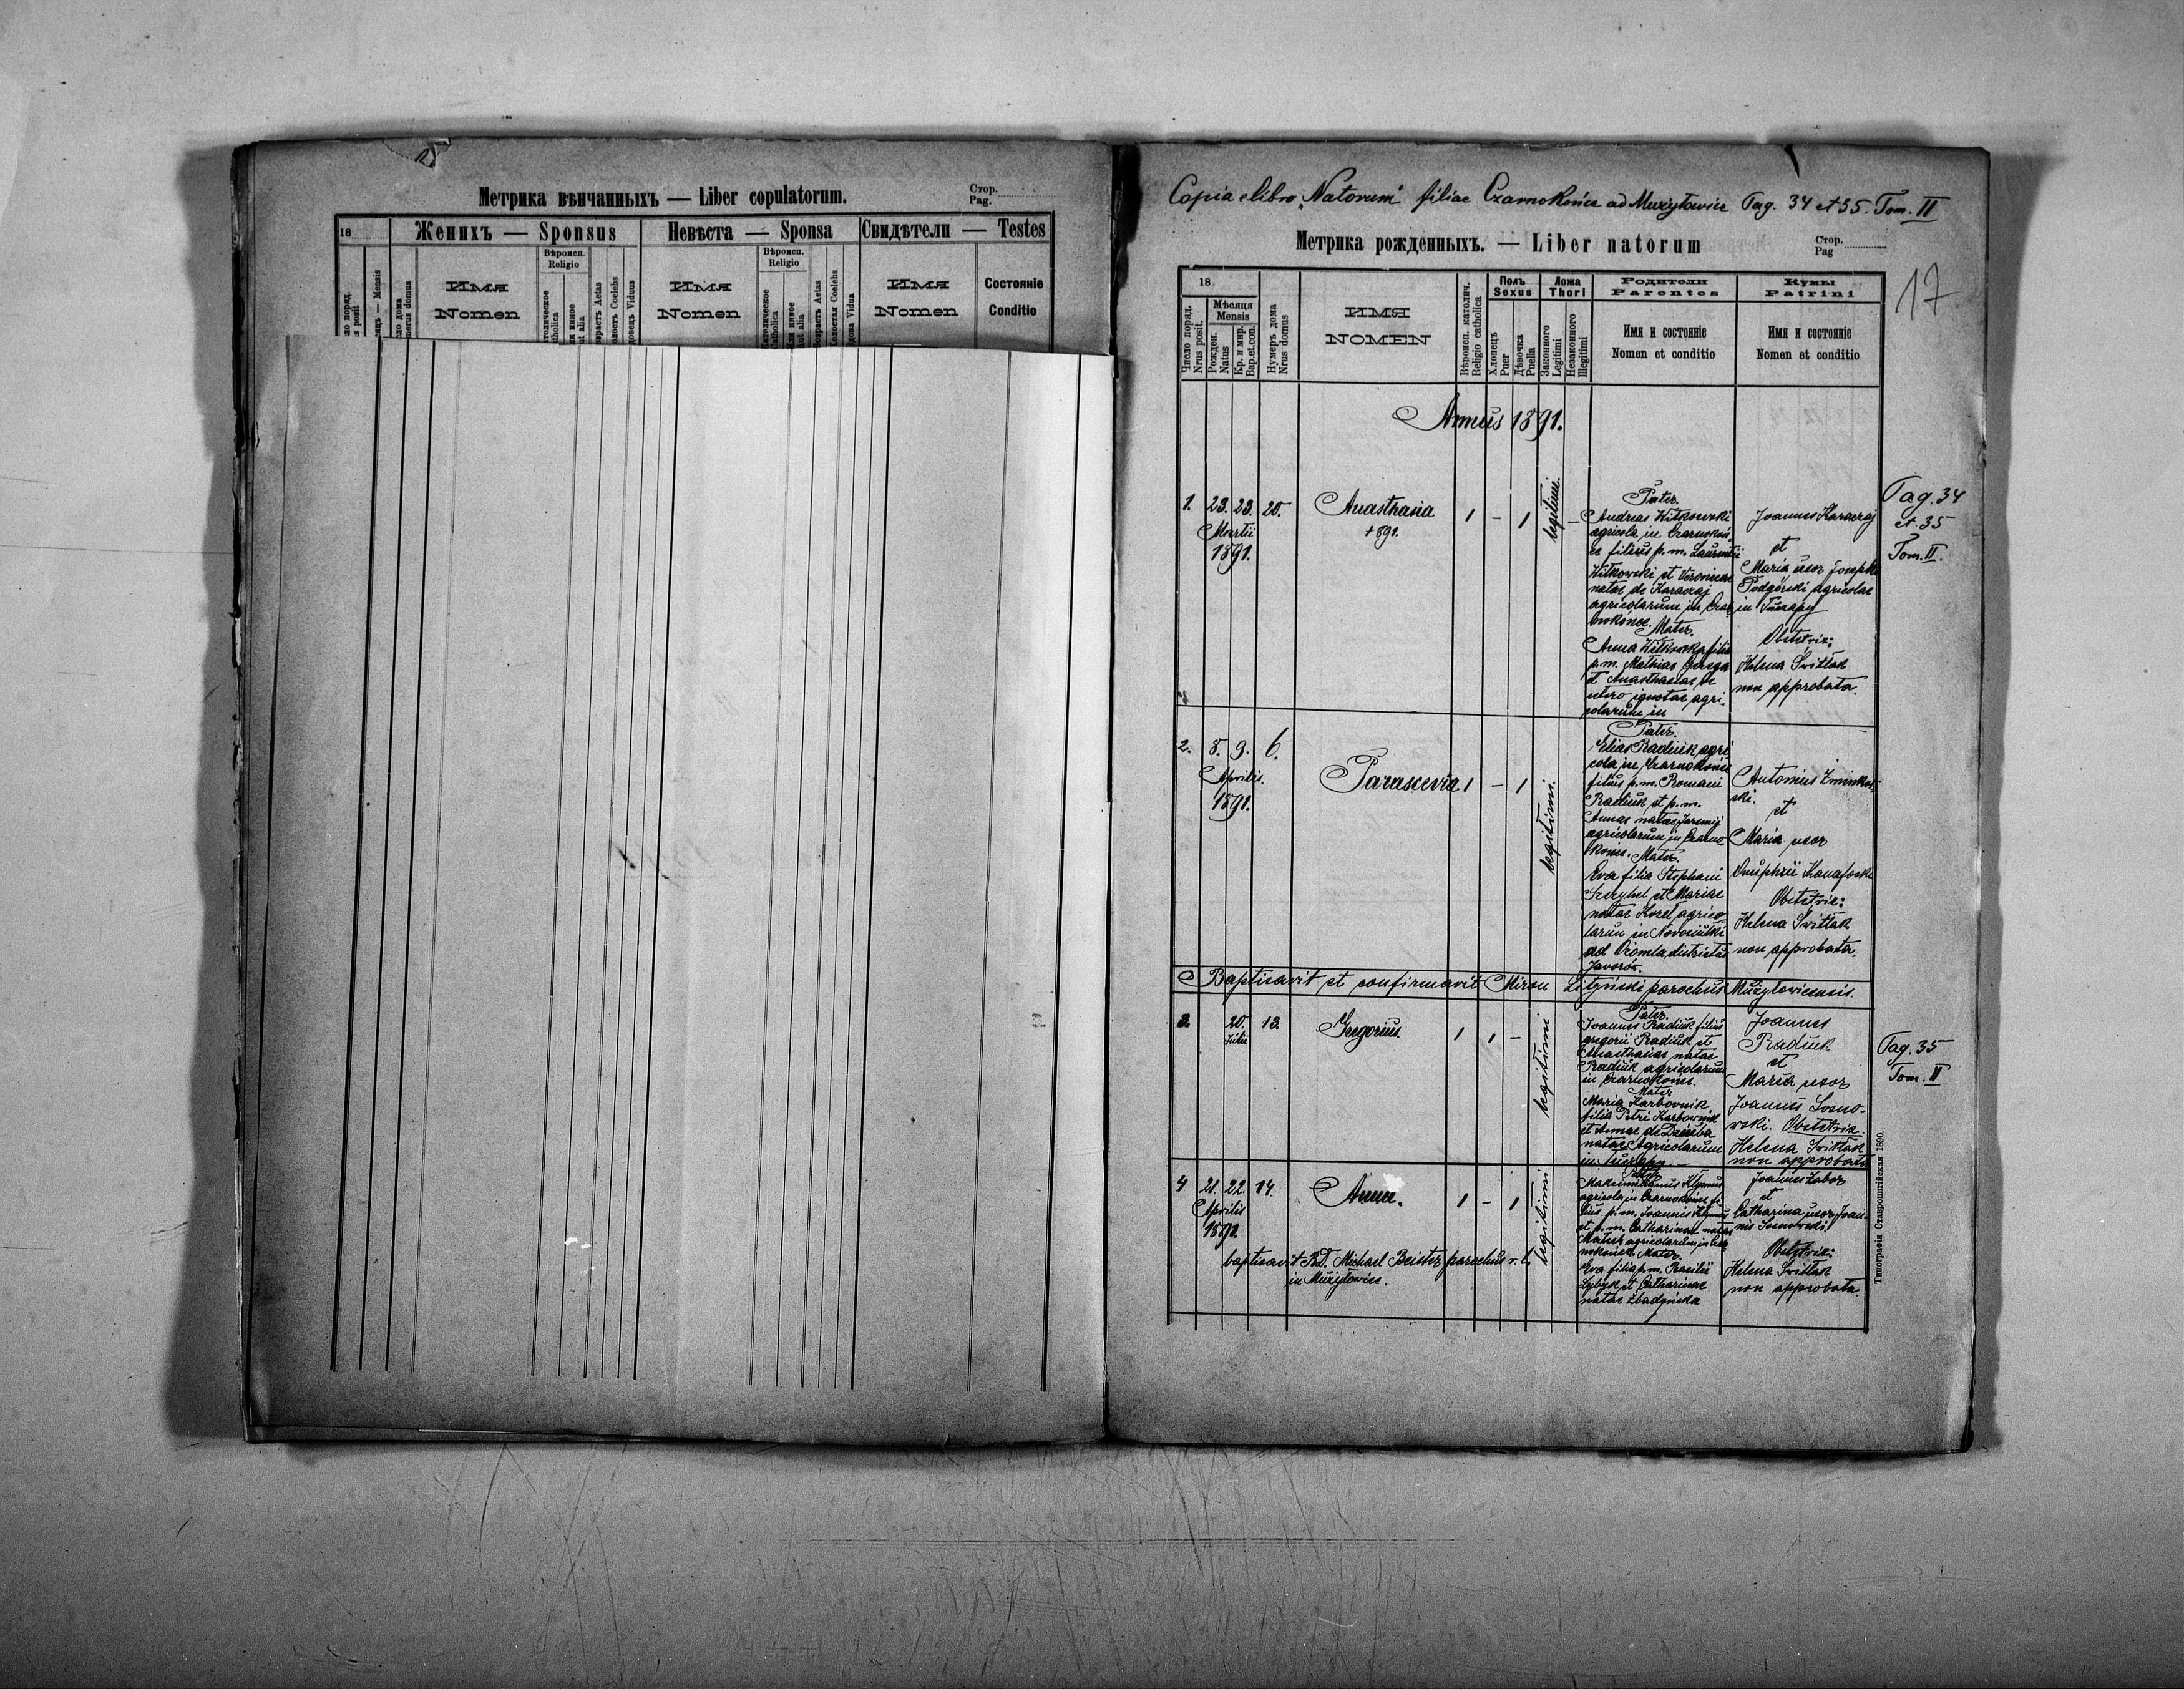 Метрика вѣнчанныхъ — Liber copulatorum.
Стор.
Pag.
18
Женихъ — Sponsus
Невѣста — Sponsa
Свидѣтели — Testes
Мѣсяцъ — Mensis
Имя
Nomen
Вѣроисп.
Religio
Возрастъ Aetas
Coelebs
Viduus
Имя
Nomen
Вѣроисп.
Religio
Католическое
Catholica
Или инное
Aut alia
Возрастъ Aetas
Холостая Coelebs
Вдова Vidua
Имя
Nomen
Состояніе
Conditio
Copia e libro "Natorum" filiae Czarnokońce ad Mużyłowice Pag. 34 et 35. Tom. II
Метрика рожденныхъ. — Liber natorum
Стор.
Pag
17
18
Число поряд.
Nrus posit.
Мѣсяця
Mensis
Рожден.
Natus
Кр. и мир.
Bap.et.con.
Нумеръ дома
Nrus domus
ИМЯ
NOMEN
Вѣроисп. католич.
Religio catholica
Полъ
Sexus
Хлопецъ
Puer
Дѣвочка
Puella
Ложа
Thori
Законного
Legitimi
Незаконного
Illegitimi
Родители
Parentes
Имя и состояніе
Nomen et conditio
Кумы
Patrini
Имя и состояніе
Nomen et conditio
Annus 1891.
1. 23. 23. 20. Anasthasia 1 - 1 legitimi. -
Martii
1891.
+ 891.
Pater.
Andreas Witkowski
agricola in Czarnokoń
ce filius p. m. Laurentii
Witkowski et Veronicae
natae de Karacraj
agricolarum in Czar
nokońce. Mater.
Anna Witkowska filia
p. m. Mathias
et Anasthasiae de
utero ignotae agri-
colarum in
Joannes Karacraj
et
Maria uxor Josephi
Podgórski agricolae
in Tuczapy
Obstetrix:
Helena Switłak
non approbata.
Pag. 34
et 35
Tom. II.
2. 8. 9. 6. Parascevia 1 - 1 legitimi.
Aprilis.
1891.
Pater.
Elias Radiuk agri
cola in Czarnokońce
filius p. m. Romani
Radiuk et p. m.
Annae natae Jaremij
agricolarum in Czarno-
końce. Mater.
Eva filia Stephani
et Mariae
natae Korel agrico-
larum in Nowosiułki
ad districtus
Javorów.
Antonius Zminkow-
ski.
et
Maria uxor
Onuphrii
Obstetrix:
Helena Switłak
non approbata.
Baptisavit et confirmavit Miron Lityński parochus Mużyłovicensis.
3. 20. 13. Gregorius. 1 1 - legitimi
Julii
Pater.
Joannes Radiuk filius
Gregorii Radiuk et
Anasthasiae natae
Radiuk agricolarum
in Czarnokońce.
Mater
Maria Karbovnik
filia Petri Karbownik
et Annae de Dziuba
natae Agricolarum
in Tuczapy.
Joannes
Radiuk
et
Maria uxor
Joannis Sosno-
wski. Obstetrix.
Helena Switłak
non approbata
Pag. 35
Tom. II
4 21. 22. 14. Anna. 1 - 1 legitimi
Aprilis
1892
baptisavit RD. Michael Beister parochus r. l.
in Mużyłowice.
Pater
Maksimilianus Klymus
agricola in Czarnokońce fi
lius p. m. Joannis Klymus
et p. m. Catharinae natae
agricolarum in Czar
nokońce. Mater.
Eva filia p. m. Basilii
et Catharinae
natae
Joannes Zabor
et
Catharina uxor Joan-
nis Sosnowski.
Obstetrix:
Helena Switłak
non approbata.
Типографія Ставропигійская 1890.